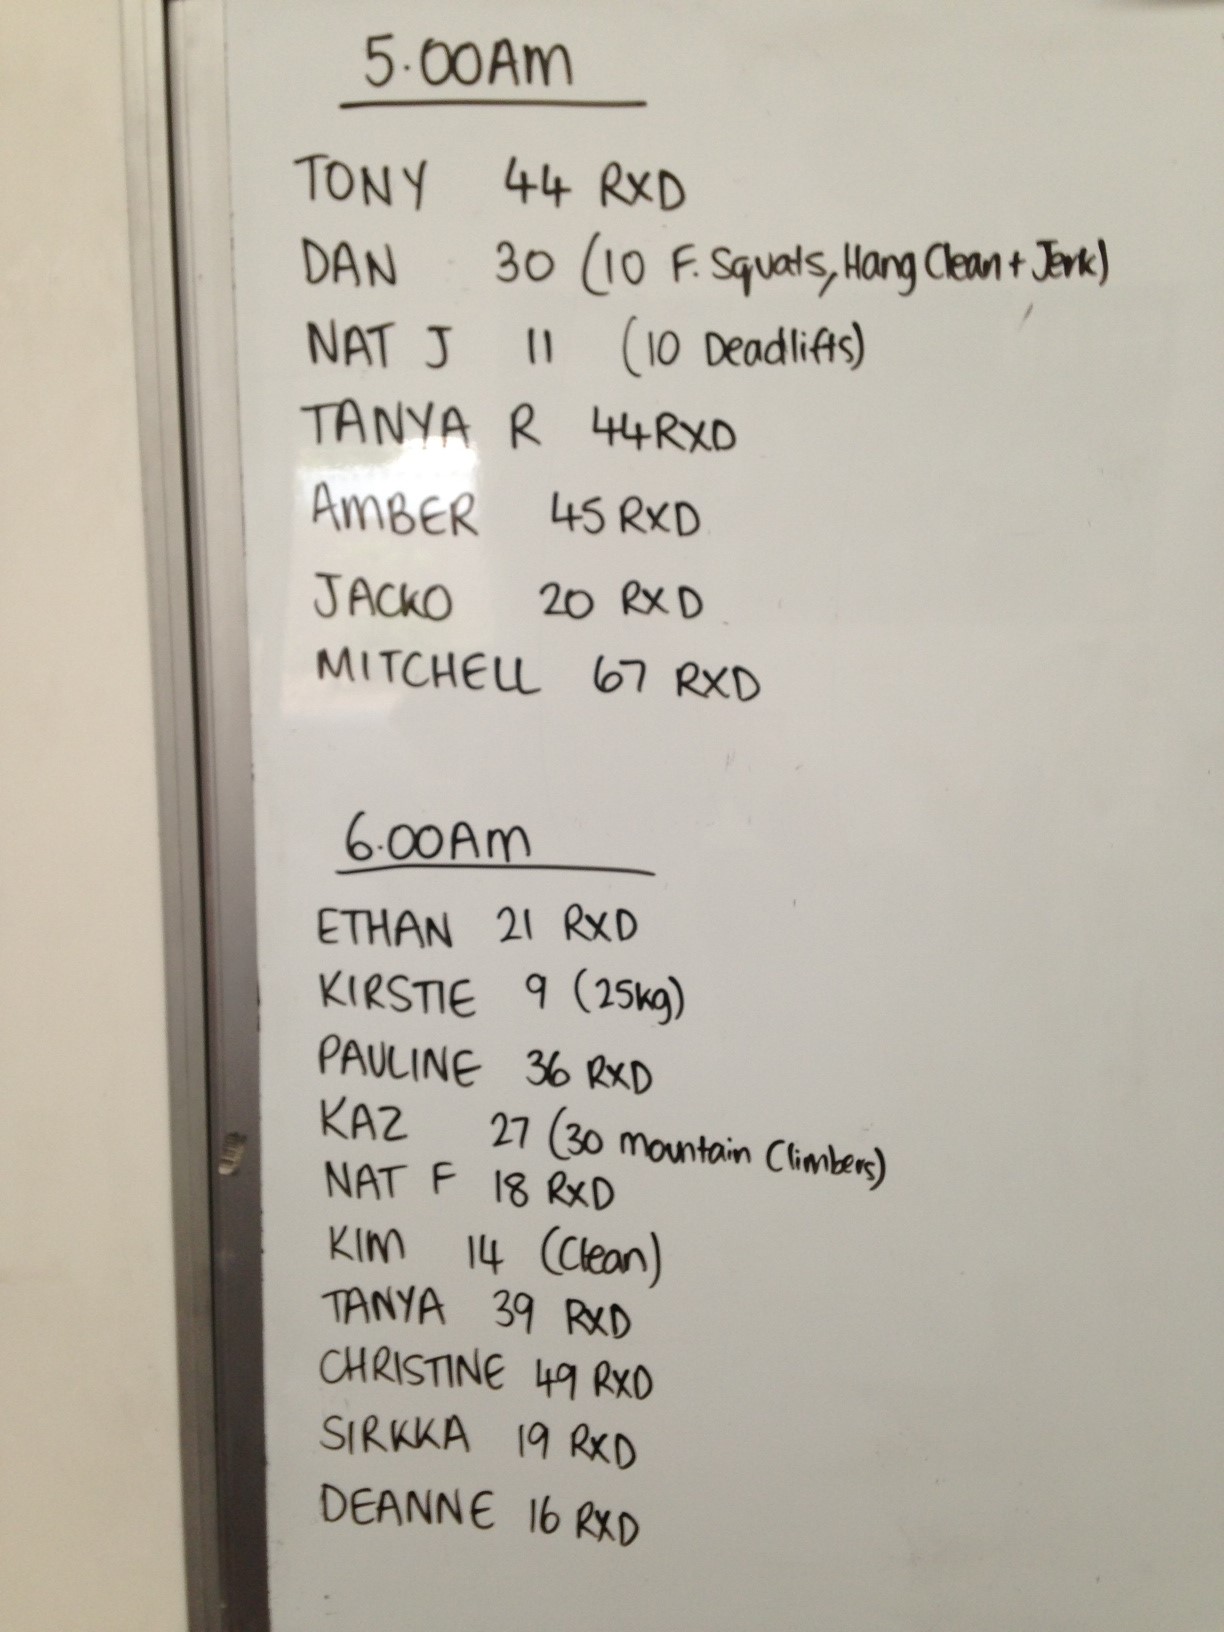 5.00AM
TONY 44 RXD
DAN 30 (10 F. Squats, Hang Clean + Jerk)
NAT J 11 (10 Deadlifts)
TANYA R 44 RXD
AMBER 45 RXD
JACKO 20 RXD
MITCHELL 67 RXD
6.00AM
ETHAN 21 RXD
KIRSTIE 9 (25kg)
PAULINE 36 RXD
KAZ 27 (30 mountain Climbers)
NAT F 18 RXD
KIM 14 (Clean)
TANYA 39 RXD
CHRISTINE 49 RXD
SIRKKA 19 RXD
DEANNE 16 RXD